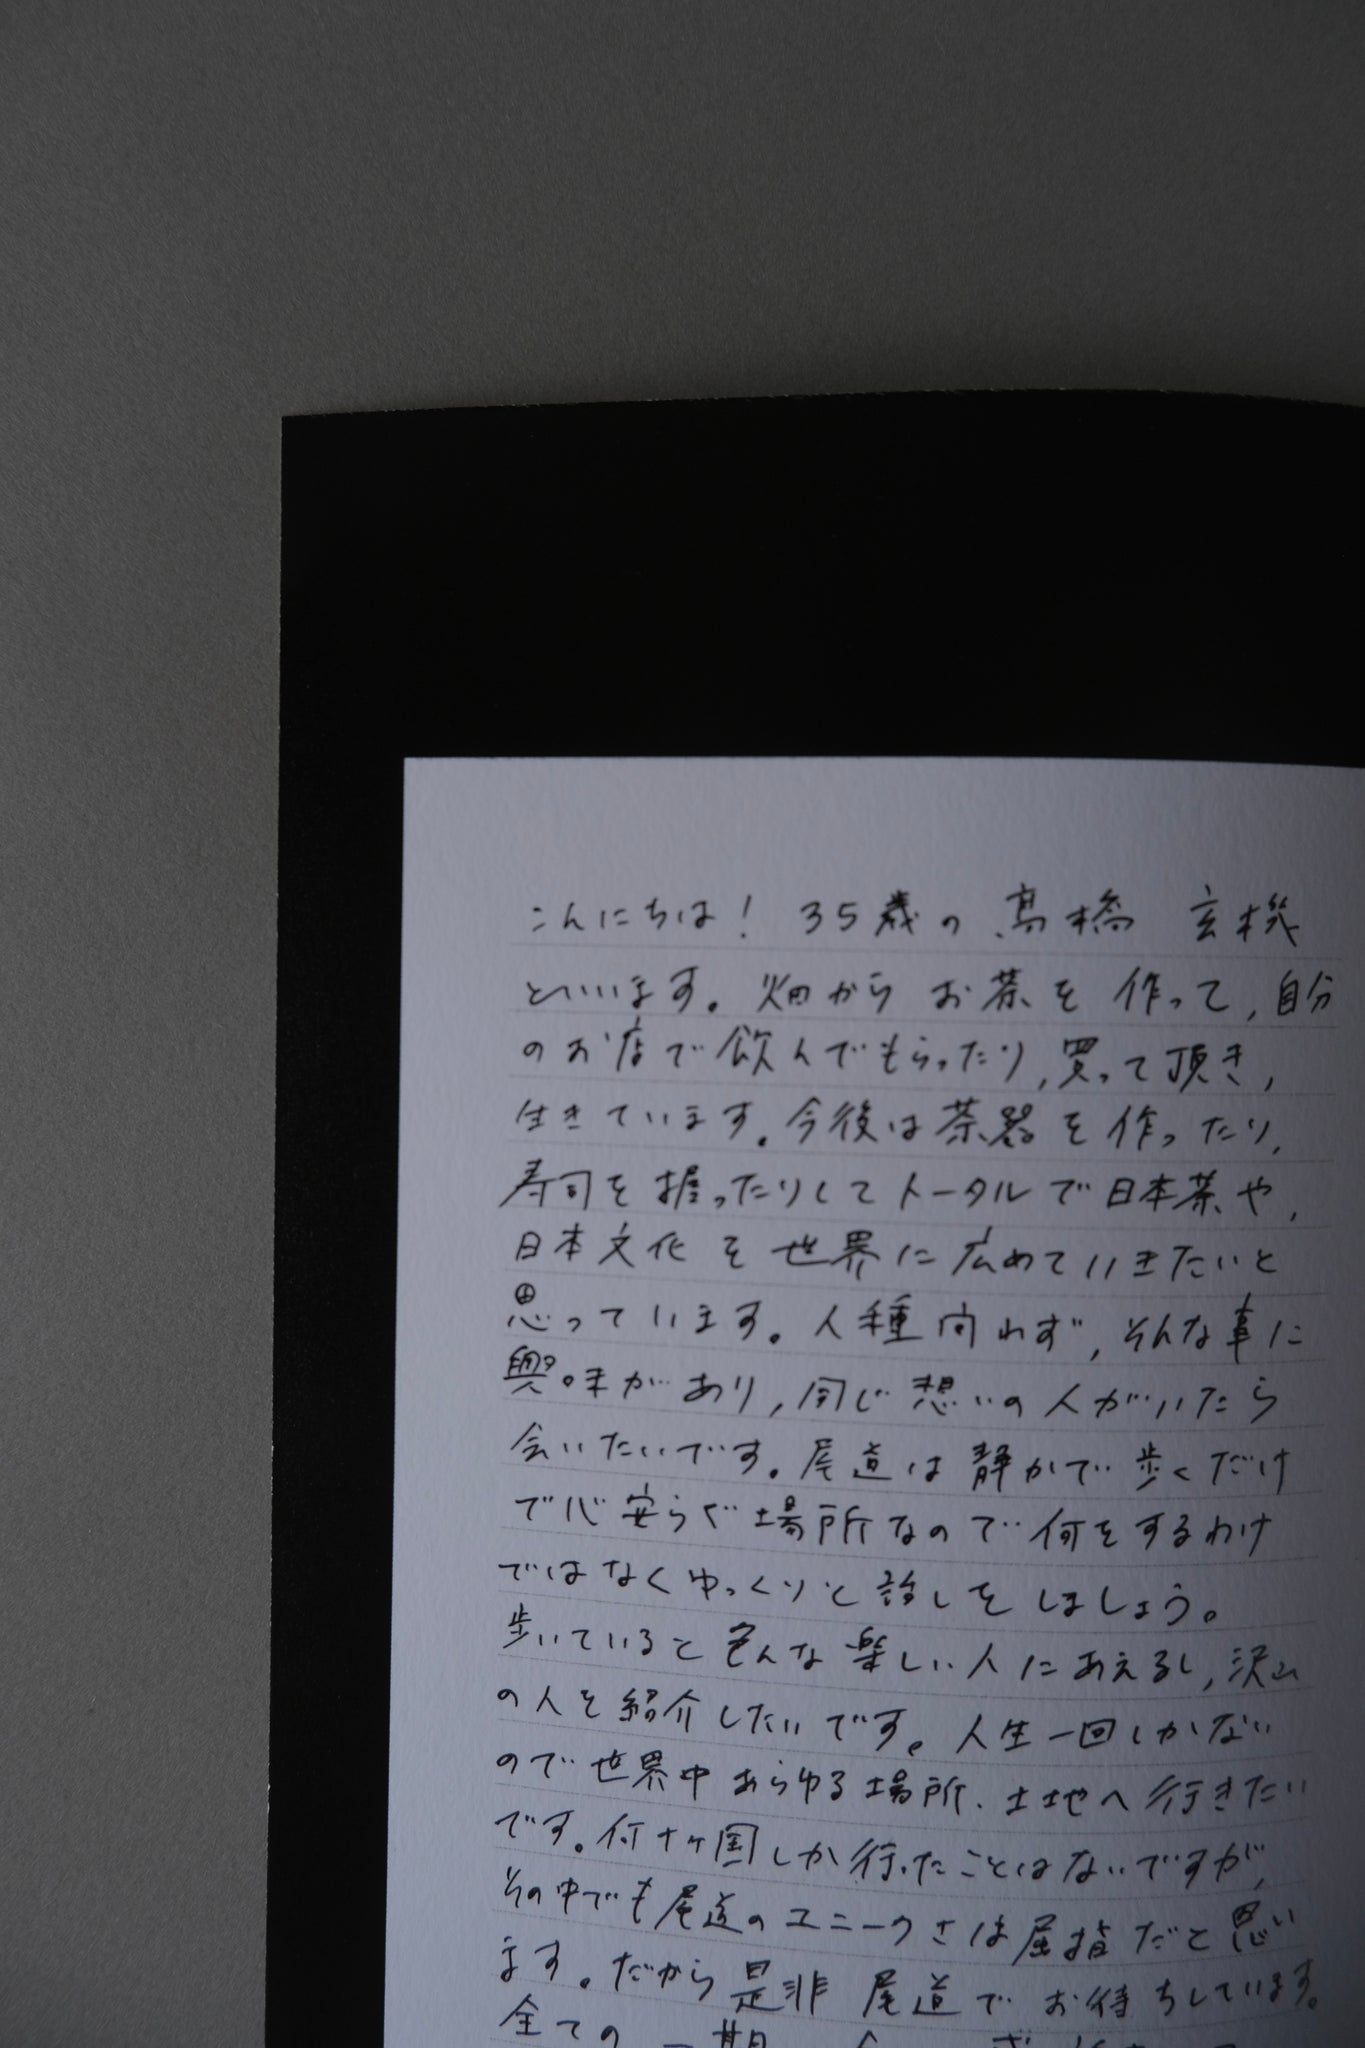 こんにちは！ 35歳の 髙橋 玄機
といいます。畑から お茶を 作って,自分
のお店で飲んでもらったり,買って頂き,
生きています。今後は茶器を作ったり,
寿司を握ったりしてトータルで日本茶や,
日本文化を世界に広めていきたいと
思っています。人種問わず,そんな事に
興味があり,同じ想いの人がいたら
会いたいです。尾道は静かで歩くだけ
で心安らぐ場所なので何をするわけ
ではなくゆっくりと話しをしましょう。
歩いていると色んな楽しい人にあえるし,沢山
の人を紹介したいです。人生一回しかない
ので世界中あらゆる場所、土地へ行きたい
です。何十ヶ国しか行ったことはないですが,
その中でも尾道のユニークさは屈指だと思い
ます。だから是非 尾道でお待ちしています。
全ての一期一会